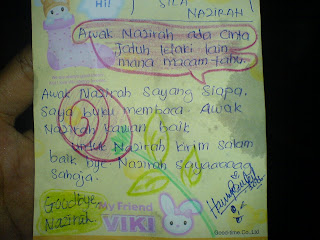 HI!
SILA
NAJIRAH
Awak Najirah ada Cinta
Jatuh lelaki lain
mana macam tahu.
Awak Najirah Sayang Siapa.
Saya buku membaca Awak
Najirah kawan baik
untuk Najirah kirim Salam
baik bye Najirah Sayaaaaag
Sahaja.
Goodbye
Najirah.
My Friend
VIKI